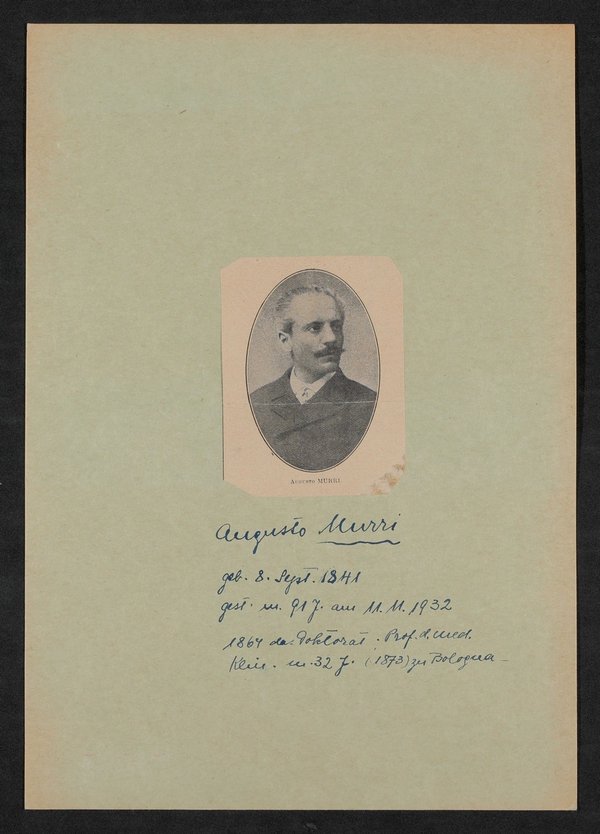 Augusto MURRI
Augusto Murri
geb. 8. Sept. 1841
gest. m. 91 J. am 11.11.1932
1864 das Doktorat. Prof. d. med.
Klin. m. 32 J. (1873) zu Bologna